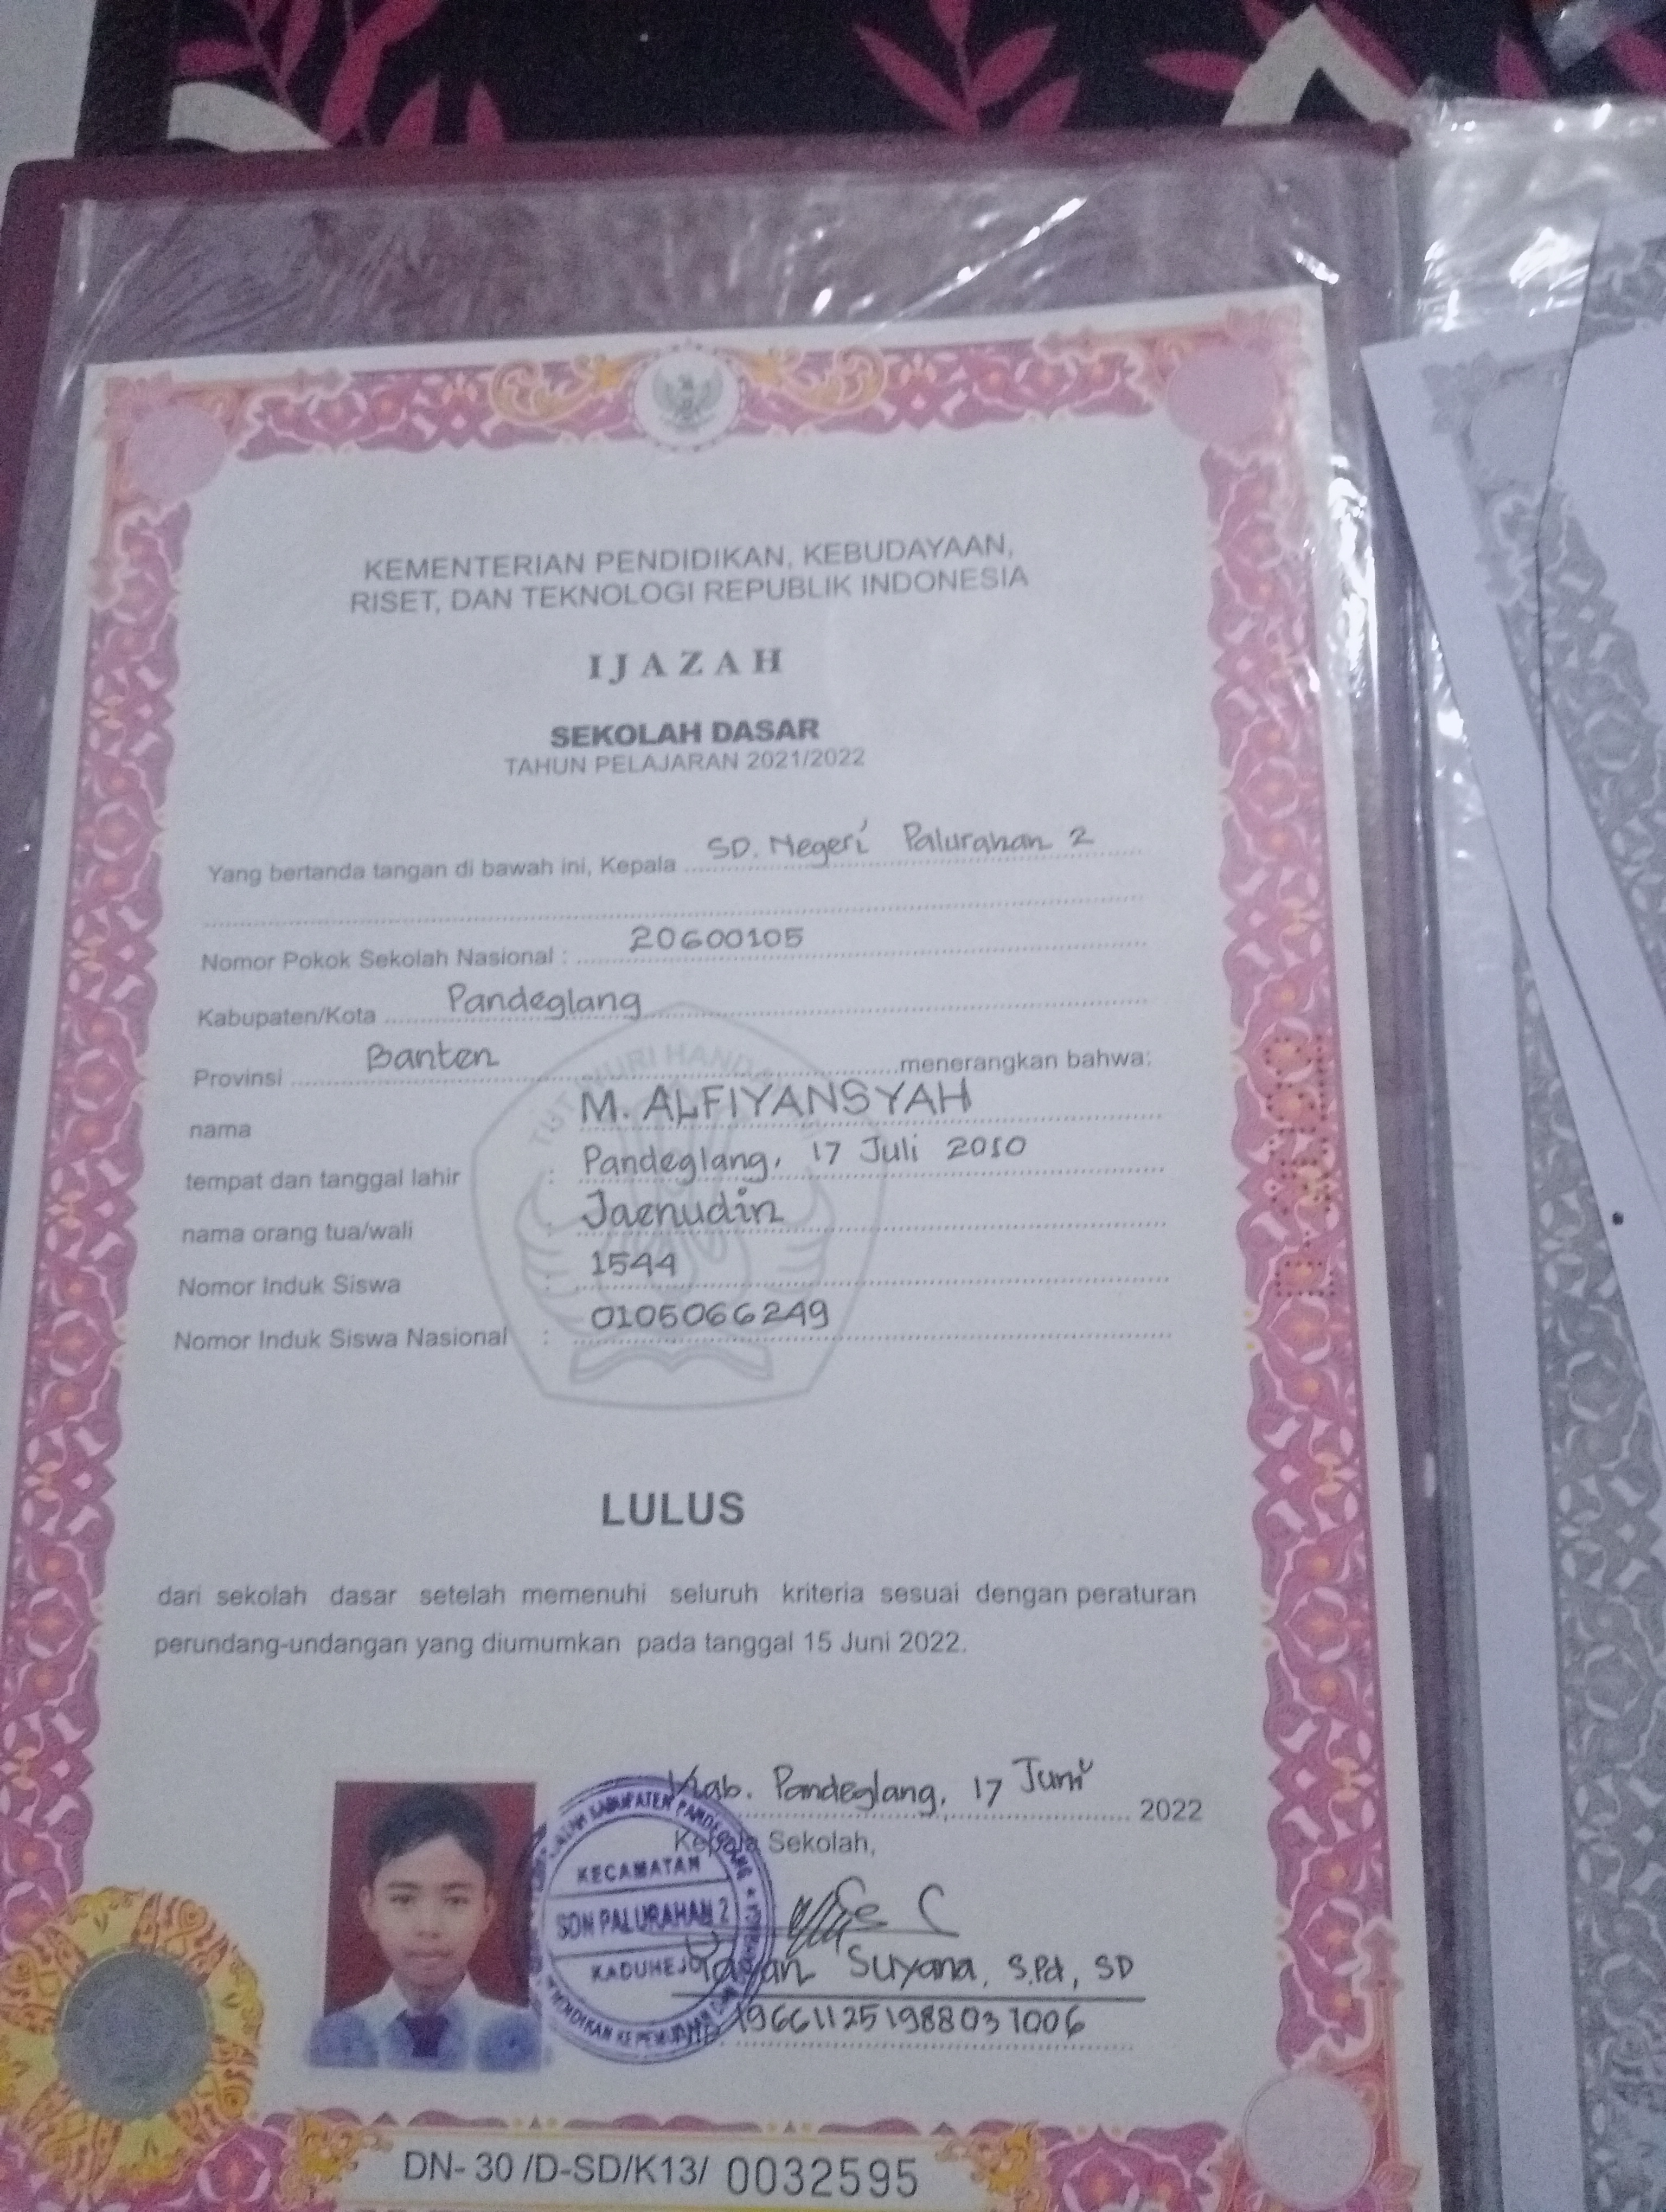 KEMENTERIAN PENDIDIKAN, KEBUDAYAAN,
RISET, DAN TEKNOLOGI REPUBLIK INDONESIA
IJAZAH
SEKOLAH DASAR
TAHUN PELAJARAN 2021/2022
Yang bertanda tangan di bawah ini, Kepala SD. Negeri Palurahan 2
Nomor Pokok Sekolah Nasional : 20600105
Kabupaten/Kota Pandeglang
Provinsi Banten menerangkan bahwa:
nama M. ALFIYANSYAH
tempat dan tanggal lahir : Pandeglang, 17 Juli 2010
nama orang tua/wali : Jaenudin
Nomor Induk Siswa : 1544
Nomor Induk Siswa Nasional : 0105066249
TUT WURI HANDAYANI
LULUS
dari sekolah dasar setelah memenuhi seluruh kriteria sesuai dengan peraturan
perundang-undangan yang diumumkan pada tanggal 15 Juni 2022.
Kab. Pandeglang, 17 Juni 2022
Kepala Sekolah,
KABUPATEN PANDEGLANG
KECAMATAN
SDN PALURAHAN 2
KADUHEJO
Suyana, S.Pd, SD
196611251988031006
DN- 30 /D-SD/K13/ 0032595